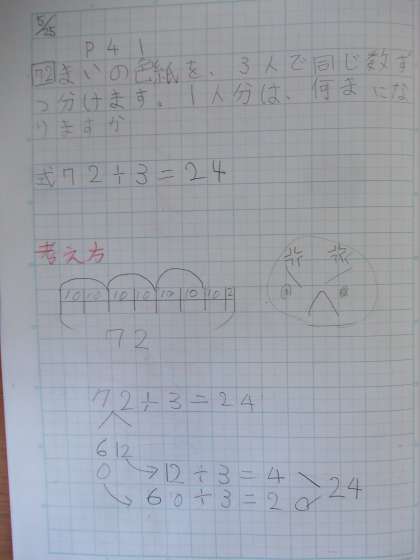 5/25
P41
72まいの色紙を、3人で同じ数ず
つ分けます。1人分は、何まいにな
りますか
式72÷3=24
考え方
10 10 10 10 10 10 10 2
72
72÷3=24
60 12
12÷3=4
60÷3=20
24